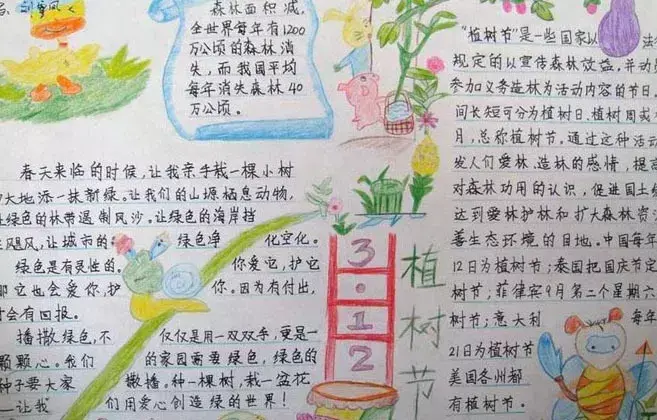 森林面积减,
全世界每年有1200
万公顷的森林消
失,而我国平均
每年消失森林40
万公顷。
春天来临的时候,让我亲手栽一棵小树
大地添一抹新绿。让我们的山塬栖息动物,
绿色的林带遏制风沙。让绿色的海岸挡
飓风,让城市的 绿色净 化空化。
绿色是有灵性的。 你爱它,护它
它也会爱你,护 你。因为有付出,
会有回报。
播撒绿色,不 仅仅是用一双双手,更是一
颗颗心。我们 的家园需要绿色,绿色的
种子要大家 撒播。种一棵树,栽一盆花
一让我 们用爱心创造绿的世界!
3·12
植树节
"植树节"是一些国家以 法
规定的以宣传森林效益,并动
参加义务造林为活动内容的节日。
间长短可分为植树日、植树周或
月,总称植树节。通过这种活动
发人们爱林、造林的感情,提
对森林功用的认识,促进国土
达到爱林护林和扩大森林资
善生态环境的目地。中国每年
12日为植树节;泰国把国庆节定
树节,菲律宾9月第二个星期六
树节;意大利 每年
21日为植树节
美国各州都
有植树节。